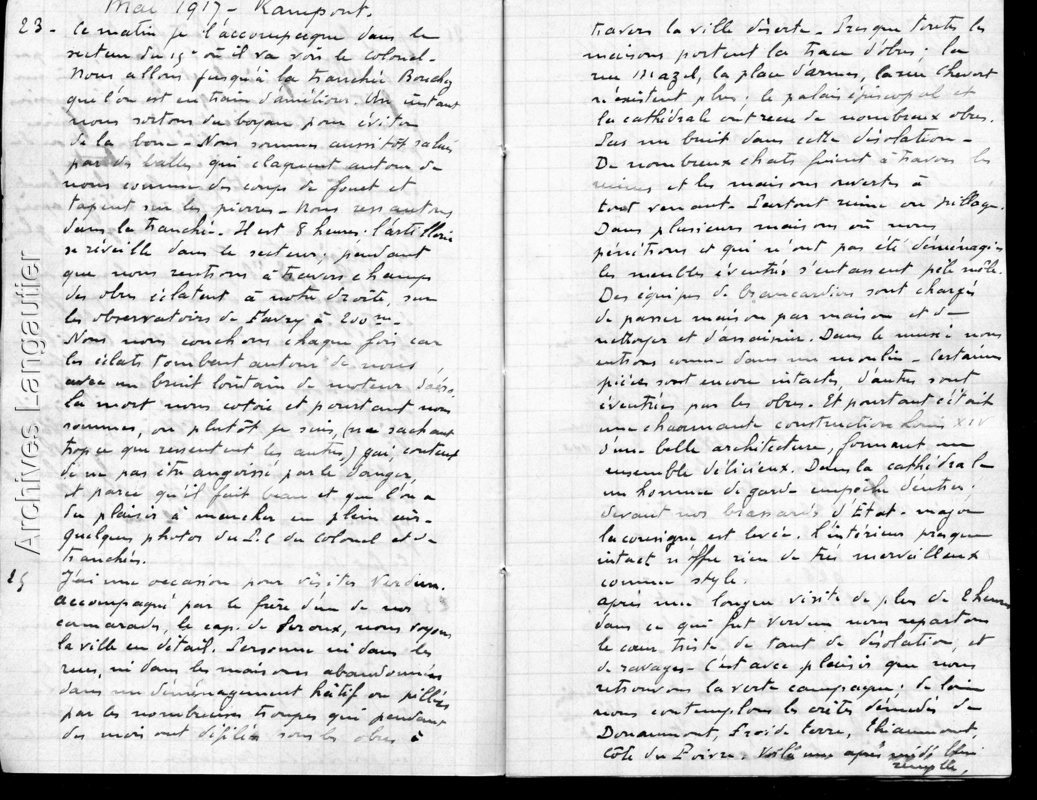 Mai 1917 - Rampont.
23 - Ce matin je l'accompagne dans le
secteur du 15e où il va voir le colonel.
Nous allons jusqu'à la tranchée
que l'on est en train d'améliorer. Un instant
nous sortons du boyau pour éviter
de la boue - Nous sommes aussitôt salués
par des balles qui claquent autour de
nous comme des coups de fouet et
tapent sur les pierres - Nous ressautons
dans la tranchée. Il est 8 heures. l'artillerie
se réveille dans le secteur, pendant
que nous rentrons à travers champs
des obus éclatent à notre droite, sur
les observatoires de à 200 m -
Nous nous couchons chaque fois car
les éclats tombent autour de nous,
avec un bruit lointain de moteur d'aéro.
La mort nous cotoie et pourtant nous
sommes, ou plutôt je suis, (ne sachant
trop ce que ressentent les autres) gai, content
de ne pas être angoissé par le danger,
et parce qu'il fait beau et que l'on a
du plaisir à marcher en plein air -
quelques photos du P.C du Colonel et de
tranchées.
25 J'ai une occasion pour visiter Verdun.
Accompagné par le frère d'un de nos
camarades, le cap. de nous voyons
la ville en détail. Personne ni dans les
rues, ni dans les maisons abandonnées
dans un déménagement hâtif ou pillées
par les nombreuses troupes qui pendant
des mois ont défilé sous les obus à
travers la ville déserte - Presque toutes les
maisons portent la trace d'obus ; la
rue Mazel, la place d'armes, la rue Chevert
n'existent plus ; le palais épiscopal et
la cathédrale ont reçu de nombreux obus.
Pas un bruit dans cette désolation -
De nombreux chats fuient à travers les
ruines et les maisons ouvertes à
tout venant - Partout ruine ou pillage.
Dans plusieurs maisons où nous
pénétrons et qui n'ont pas été déménagées
les meubles éventrés s'entassent pêle mêle.
Des équipes de brancardiers sont chargés
de passer maison par maison et de
nettoyer et d'assainir. Dans le musée nous
entrons comme dans un moulin - Certaines
pièces sont encore intactes, d'autres sont
éventrées par les obus. Et pourtant c'était
une charmante construction Louis XIV
d'une belle architecture, formant un
ensemble délicieux. Dans la cathédrale
un homme de garde empêche d'entrer ;
devant nos brassards d'Etat-major
la consigne est levée. l'intérieur presque
intact n'offre rien de très merveilleux
comme style.
après une longue visite de plus de 2 heures
dans ce qui fut Verdun nous repartons
le cœur triste de tant de désolation, et
de ravages - C'est avec plaisir que nous
retrouvons la verte campagne ; de loin
nous contemplons les crêtes dénudées de
Douaumont, froide terre, Thiaumont,
Côte du Poivre. Voilà une après midi bien
remplie,
Archives Langautier